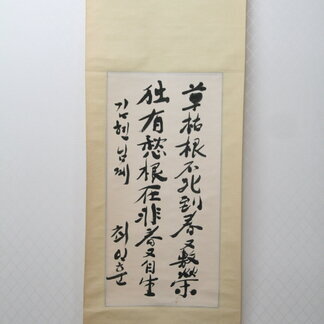 草枯根不死到春又敷榮
独有愁根在非春又自生
김현 님께 최인훈